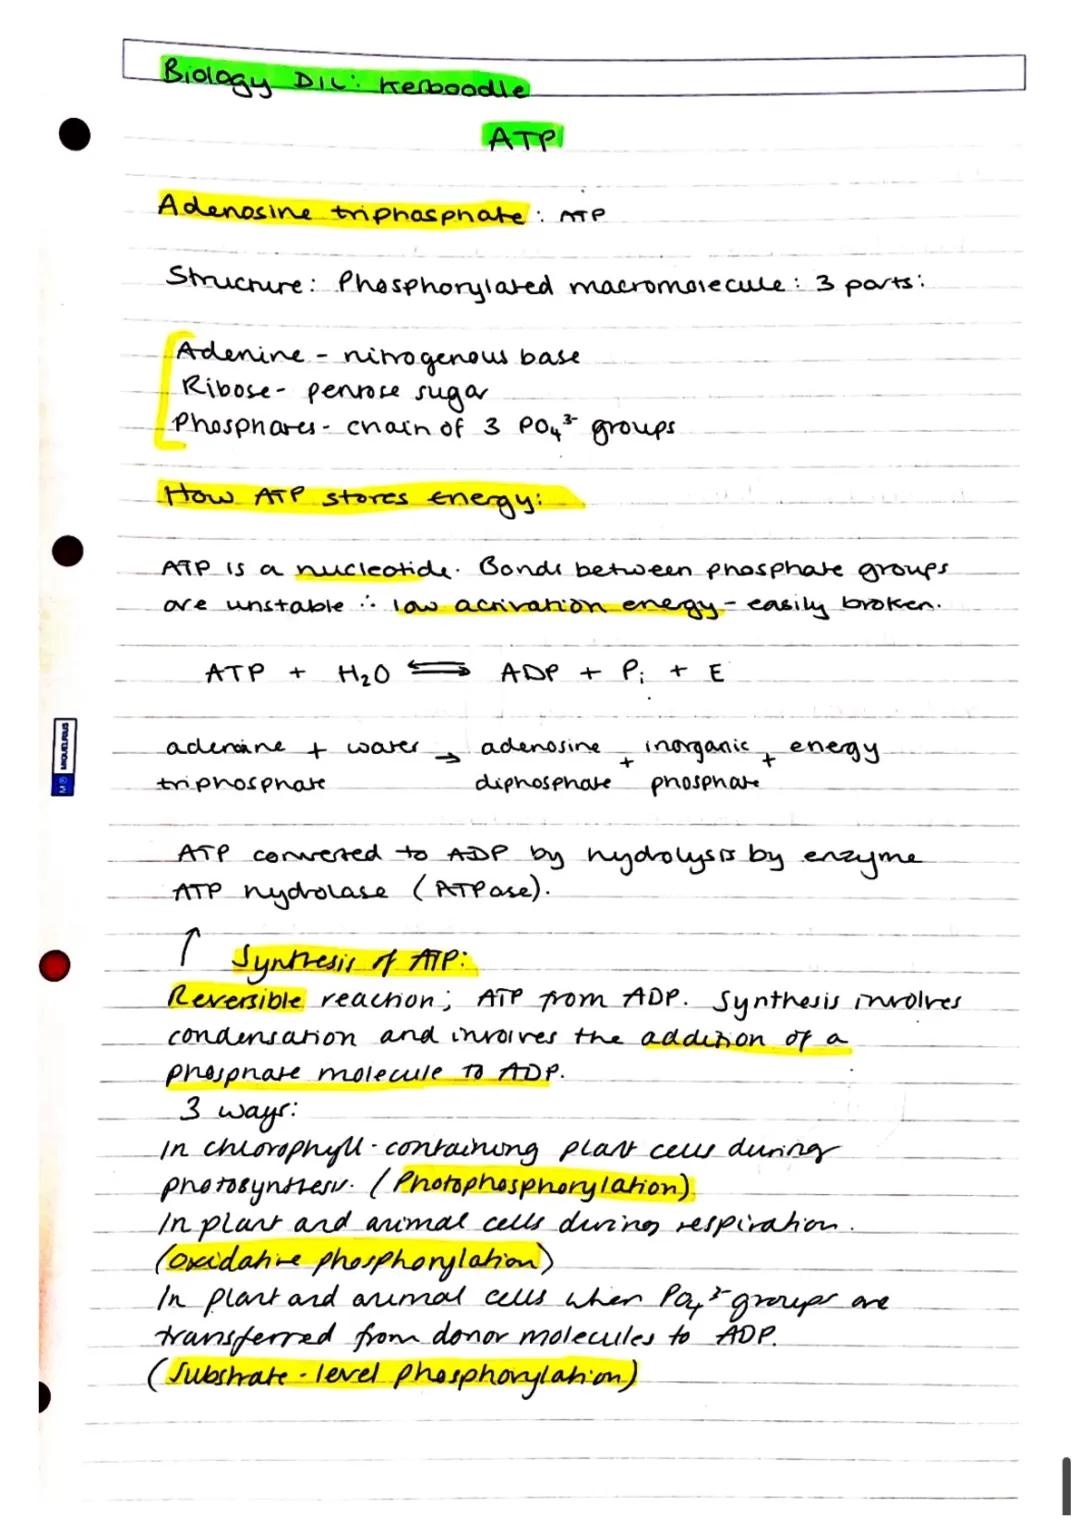 Biology DIL: Kerboodle
ATP
Adenosine triphosphate: ATP
Structure: Phosphorylated macromolecule: 3 parts:
Adenine - nitrogenous base
Ribose - pentose sugar
Phosphates - chain of 3 PO₄³⁻ groups
How ATP stores energy:
ATP is a nucleotide. Bonds between phosphate groups
are unstable ∴ low activation energy - easily broken.
ATP + H₂O ⇌ ADP + Pi + E
adenosine + water → adenosine + inorganic + energy
triphosphate diphosphate phosphate
MIQUELRIUS
ATP converted to ADP by hydrolysis by enzyme
ATP hydrolase (ATPase).
↑ Synthesis of ATP:
Reversible reaction; ATP from ADP. Synthesis involves
condensation and involves the addition of a
phosphate molecule to ADP.
3 ways:
In chlorophyll-containing plant cells during
photosynthesis. (Photophosphorylation)
In plant and animal cells during respiration.
(Oxidative phosphorylation)
In plant and animal cells when PO₄³⁻ groups are
transferred from donor molecules to ADP.
(Substrate-level phosphorylation)